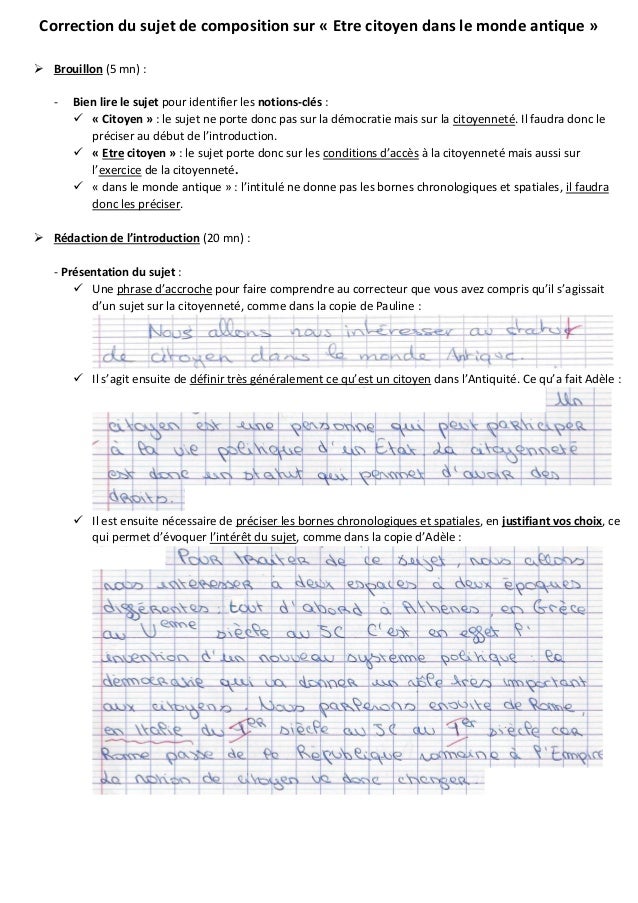 Correction du sujet de composition sur « Etre citoyen dans le monde antique »
➢ Brouillon (5 mn) :
- Bien lire le sujet pour identifier les notions-clés :
✓ « Citoyen » : le sujet ne porte donc pas sur la démocratie mais sur la citoyenneté. Il faudra donc le
préciser au début de l'introduction.
✓ « Etre citoyen » : le sujet porte donc sur les conditions d'accès à la citoyenneté mais aussi sur
l'exercice de la citoyenneté.
✓ « dans le monde antique » : l'intitulé ne donne pas les bornes chronologiques et spatiales, il faudra
donc les préciser.
➢ Rédaction de l'introduction (20 mn) :
- Présentation du sujet :
✓ Une phrase d'accroche pour faire comprendre au correcteur que vous avez compris qu'il s'agissait
d'un sujet sur la citoyenneté, comme dans la copie de Pauline :
Nous allons nous intéresser au statut
de citoyen dans le monde Antique.
✓ Il s'agit ensuite de définir très généralement ce qu'est un citoyen dans l'Antiquité. Ce qu'a fait Adèle :
Un
citoyen est une personne qui peut participer
à la vie politique d'un Etat. La citoyenneté
est donc un statut qui permet d'avoir des
droits.
✓ Il est ensuite nécessaire de préciser les bornes chronologiques et spatiales, en justifiant vos choix, ce
qui permet d'évoquer l'intérêt du sujet, comme dans la copie d'Adèle :
Pour traiter de ce sujet, nous allons
nous interesser à deux espaces à deux époques
différentes : tout d'abord à Athènes, en Grèce
au Veme siècle av JC. C'est en effet l'
invention d'un nouveau systeme politique : la
démocratie qui va donner un rôle très important
aux citoyens. Nous parlerons ensuite de Rome,
en Italie du Ier siècle av JC au Ier siècle car
Rome passe de la République romaine à l'Empire
La notion de citoyen va donc changer.